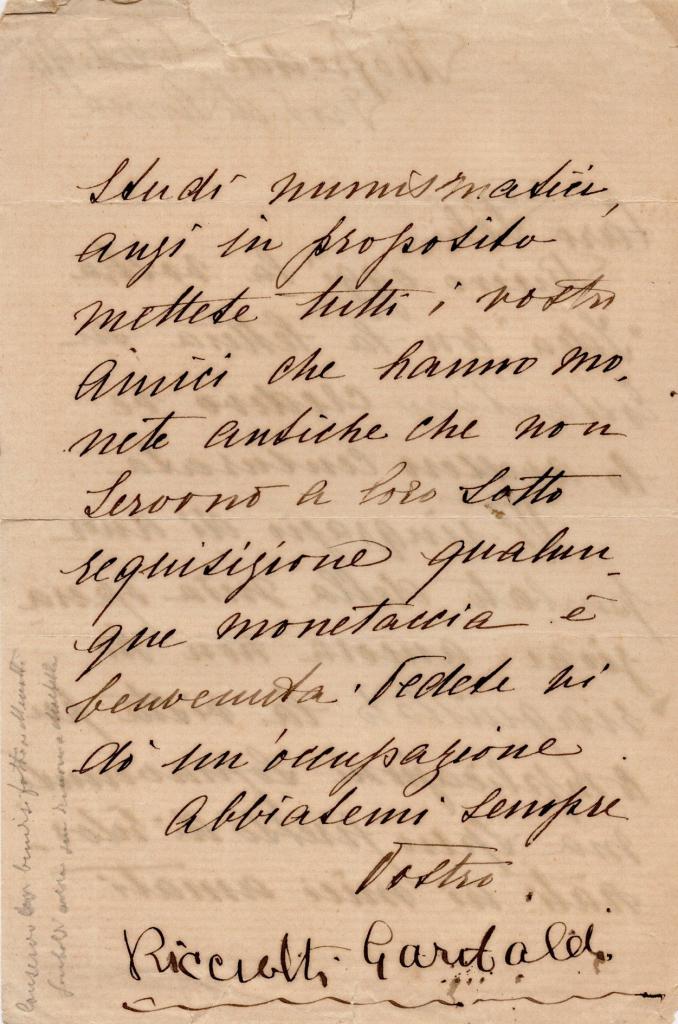 studi numismatici,
anzi in proposito
mettete tutti i vostri
amici che hanno mo,
nete antiche che non
servono a loro sotto
requisizione qualun-
que monetaccia è
benvenuta. Vedete vi
dò un'occupazione
Abbiatemi sempre
Vostro
Ricciotti Garibaldi.